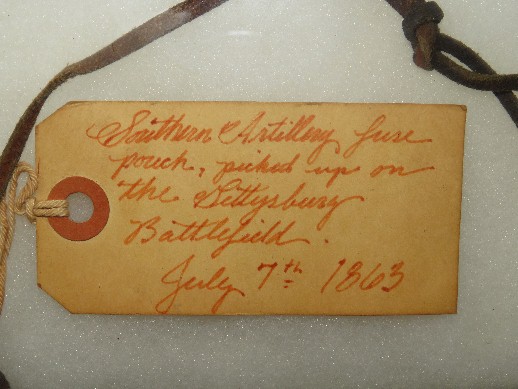 Southern Artillery fuse
pouch, picked up on
the Gettysburg
Battlefield.
July 7th 1863